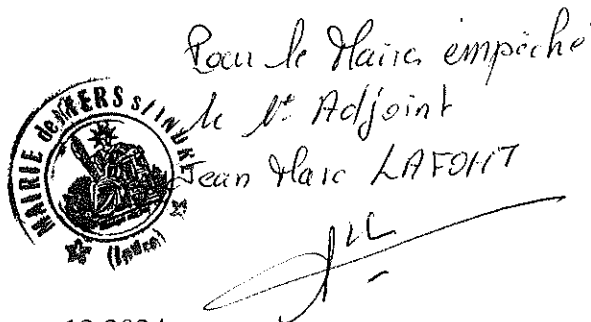 Pour le Maire empêché
le 1er Adjoint
Jean Marc LAFONT
MAIRIE de MERS s/INDRE
(Indre)